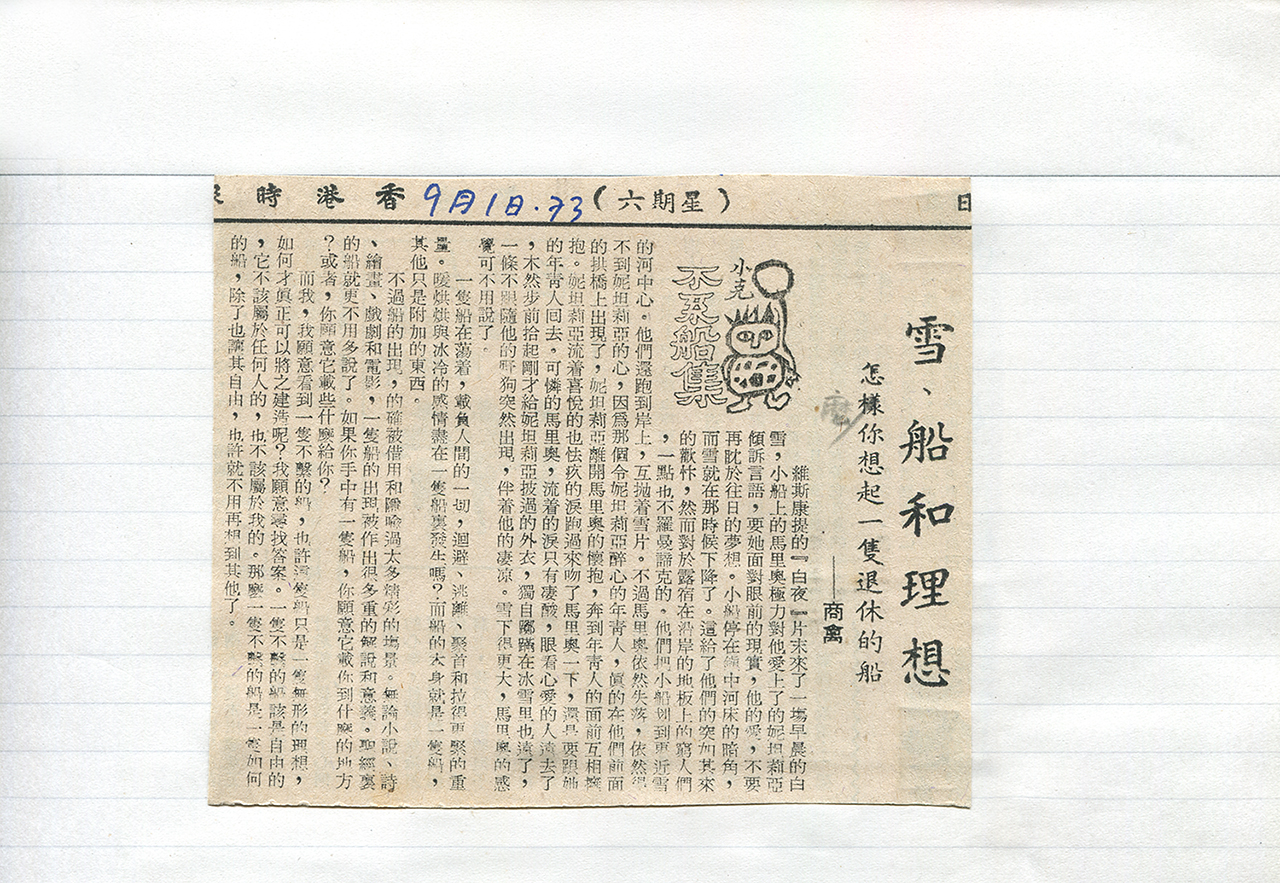 日
（星期六）
9月1日.73
香港時
雪、船和理想
怎樣你想起一隻退休的船
麽
——商禽
小克
不系船集
維斯康提的『白夜』一片末來了一場早晨的白
雪，小船上的馬里奧極力對他愛上了的妮坦莉亞
傾訴言語，要她面對眼前的現實，他的愛，不要
再眈於往日的夢想。小船停在鎮中河床的暗角，
而雪就在那時候下降了。這給了他們的突如其來
的歡忭，然而對於露宿在沿岸的地板上的窮人們
，一點也不羅曼諦克的。他們把小船划到更近雪
的河中心。他們還跑到岸上，互拋着雪片。不過馬里奧依然失落，依然得
不到妮坦莉亞的心，因爲那個令妮坦莉亞醉心的年靑人，眞的在他們前面
的拱橋上出現了，妮坦莉亞離開馬里奧的懷抱，奔到年靑人的面前互相擁
抱。妮坦莉亞流着喜悅的也怯疚的淚跑過來吻了馬里奧一下，還是要跟她
的年靑人回去。可憐的馬里奧，流着的淚只有凄酸，眼看心愛的人遠去了
，木然步前拾起剛才給妮坦莉亞披過的外衣，獨自躑躅在冰雪里也遠了，
一條不跟隨他的野狗突然出現，伴着他的凄凉。雪下得更大，馬里奧的感
覺可不用說了。
一隻船在蕩着，載負人間的一切，迴避、逃離、聚首和拉得更緊的重
量。暖烘烘與冰冷的感情盡在一隻船裏發生嗎？而船的本身就是一隻船，
其他只是附加的東西。
不過船的出現，的確被借用和隱喻過太多精彩的場景。無論小說、詩
、繪畫、戲劇和電影，一隻船的出現被作出很多重的解說和意義。聖經裏
的船就更不用多說了。如果你手中有一隻船，你願意它載你到什麽的地方
？或者，你願意它載些什麽給你？
而我，我願意看到一隻不繫的船，也許這隻船只是一隻無形的理想，
如何才眞正可以將之建造呢？我願意尋找答案。一隻不繫的船該是自由的
，它不該屬於任何人的，也不該屬於我的。那麽一隻不繫的船是一隻如何
的船，除了也讓其自由，也許就不用再想到其他了。